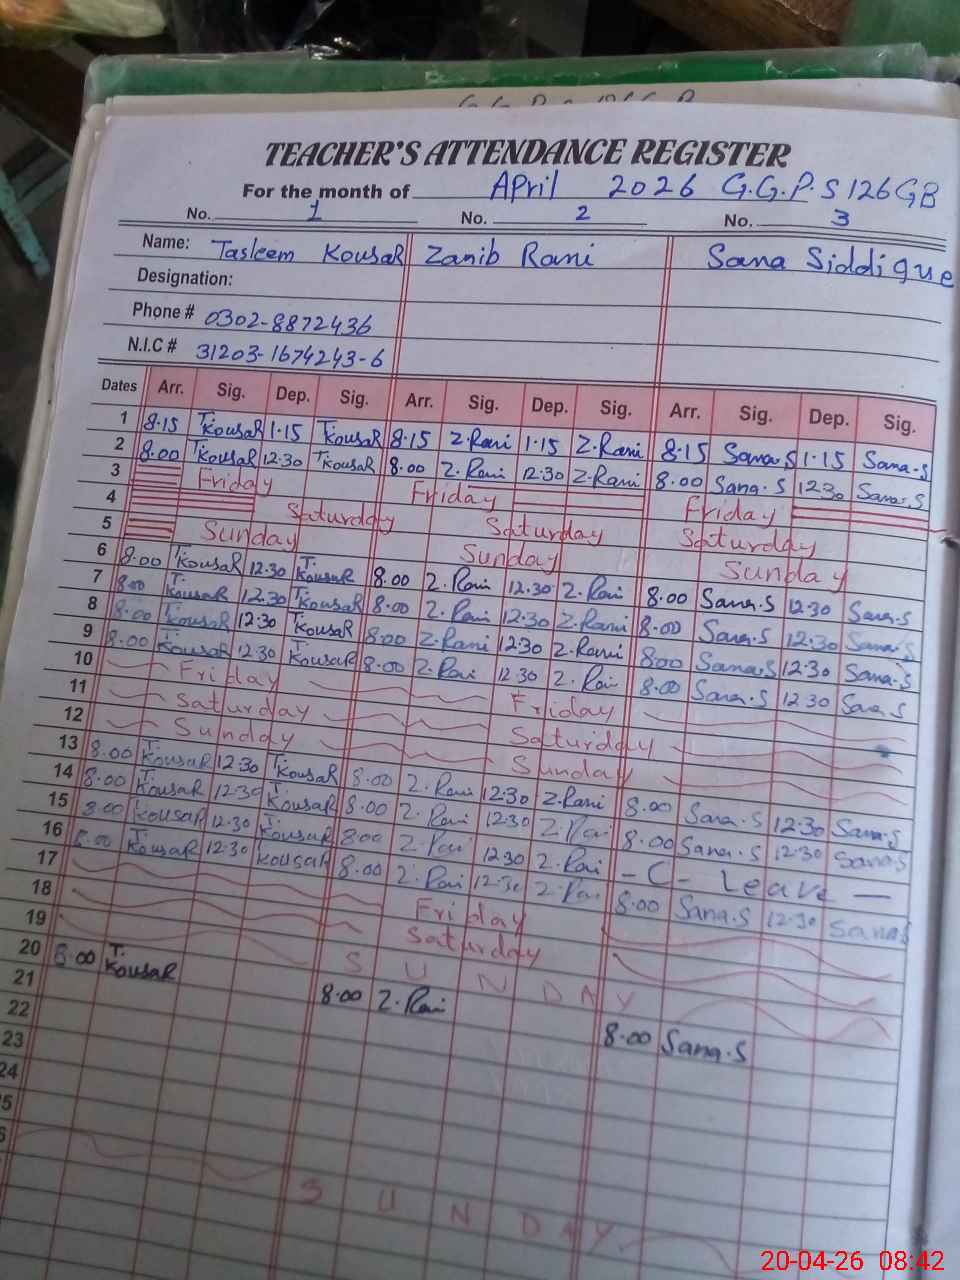 TEACHER'S ATTENDANCE REGISTER
For the month of April 2026 G.G.P.S 126 GB
No. 1 No. 2 No. 3
Name: Tasleem KousaR Zanib Rani Sana Siddique
Designation:
Phone # 0302-8872436
N.I.C # 31203-1674243-6
Dates Arr. Sig. Dep. Sig. Arr. Sig. Dep. Sig. Arr. Sig. Dep. Sig.
1 8.15 T.KousaR 1.15 T.KousaR 8.15 Z.Rani 1.15 Z.Rani 8.15 Sana.S 1.15 Sana.S
2 8.00 T.KousaR 12.30 T.KousaR 8.00 Z.Rani 12.30 Z.Rani 8.00 Sana.S 12.30 Sana.S
3 Friday Friday Friday
4 Saturday Saturday Saturday
5 Sunday Sunday Sunday
6 8.00 T.KousaR 12.30 T.KousaR 8.00 Z.Rani 12.30 Z.Rani 8.00 Sana.S 12.30 Sana.S
7 8.00 T.KousaR 12.30 T.KousaR 8.00 Z.Rani 12.30 Z.Rani 8.00 Sana.S 12.30 Sana.S
8 8.00 T.KousaR 12.30 T.KousaR 8.00 Z.Rani 12.30 Z.Rani 8.00 Sana.S 12.30 Sana.S
9 8.00 T.KousaR 12.30 T.KousaR 8.00 Z.Rani 12.30 Z.Rani 8.00 Sana.S 12.30 Sana.S
10 Friday Friday
11 Saturday Saturday
12 Sunday Sunday
13 8.00 T.KousaR 12.30 T.KousaR 8.00 Z.Rani 12.30 Z.Rani 8.00 Sana.S 12.30 Sana.S
14 8.00 T.KousaR 12.30 T.KousaR 8.00 Z.Rani 12.30 Z.Rani 8.00 Sana.S 12.30 Sana.S
15 8.00 KousaR 12.30 T.KousaR 8.00 Z.Rani 12.30 Z.Rani - C - Leave -
16 8.00 T.KousaR 12.30 KousaR 8.00 Z.Rani 12.30 Z.Rani 8.00 Sana.S 12.30 Sana.S
17 Friday
18 Saturday
19 SUNDAY
20 8.00 T.KousaR 8.00 Z.Rani 8.00 Sana.S
21
22
23
24
5
6 SUNDAY
20-04-26 08:42